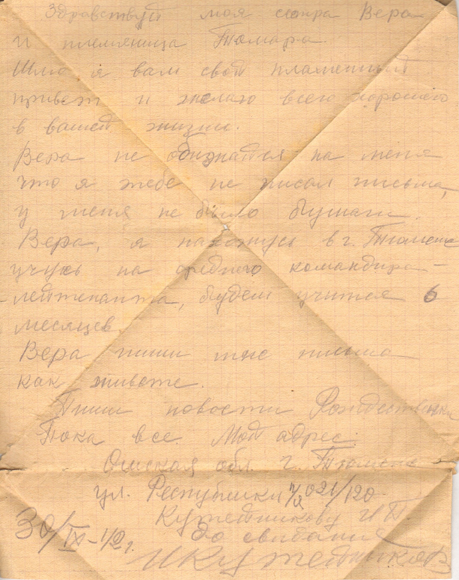 Здравствуй моя сестра Вера
и племяница Тамара.
Шлю я вам свой пламенный
привет и желаю всего хорошего
в вашей жизни.
Вера не обижайся на меня
что я тебе не писал письма,
у меня не было бумаги.
Вера, я нахожусь в г. Тюмене
учусь на среднего командира –
лейтенанта, будем учится 6
месяцев.
Вера пиши мне письма
как живете.
Пиши новости
Пока все. Мой адрес:
Омская обл г. Тюмень
ул. Республики 7/2 021/120
Кужетникову И П.
30/IX-42г. До свидания
И Кужетников